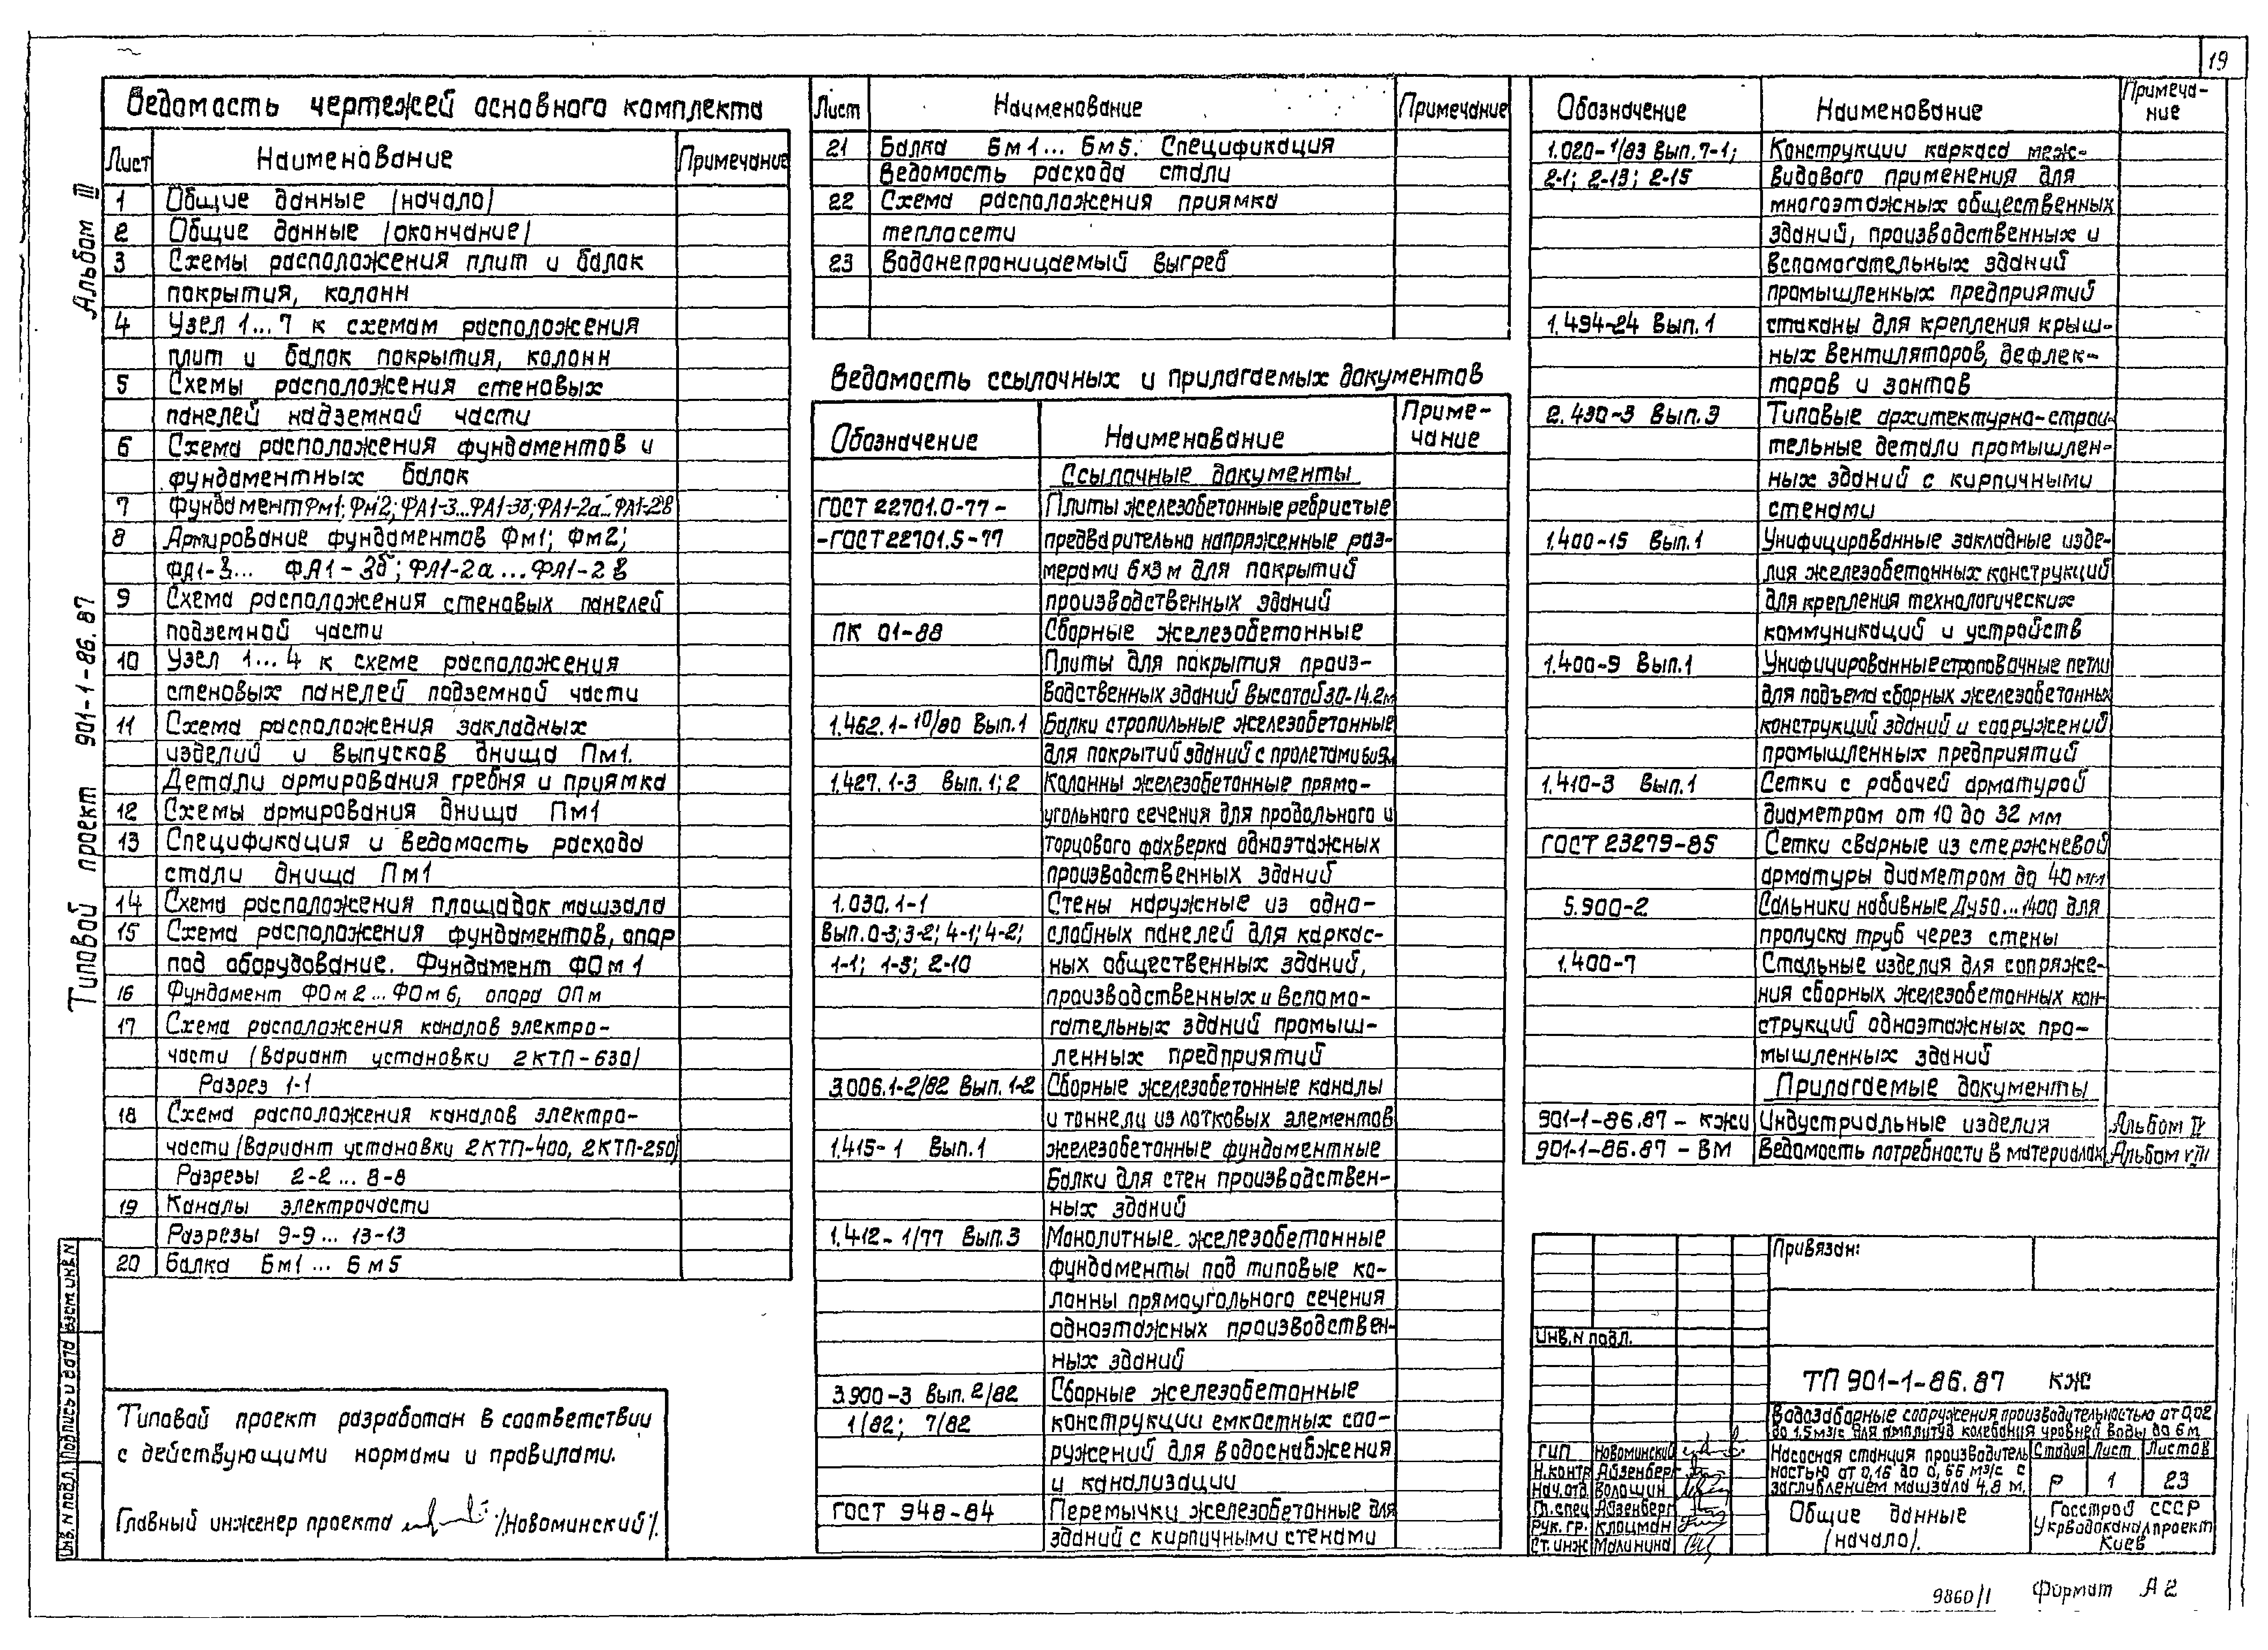 19
Альбом III
Типовой проект 901-1-86.87
Ведомость чертежей основного комплекта
Лист Наименование Примечание
1 Общие данные /начало/
2 Общие данные /окончание/
3 Схемы расположения плит и балок
покрытия, колонн
4 Узел 1...7 к схемам расположения
плит и балок покрытия, колонн
5 Схемы расположения стеновых
панелей надземной части
6 Схема расположения фундаментов и
фундаментных балок
7 Фундамент Фм1; Фм2; ФА1-3...ФА1-3б; ФА1-2а...ФА1-2в
8 Армирование фундаментов Фм1; Фм2;
ФА1-3... ФА1-3б; ФА1-2а...ФА1-2в
9 Схема расположения стеновых панелей
подземной части
10 Узел 1...4 к схеме расположения
стеновых панелей подземной части
11 Схема расположения закладных
изделий и выпусков днища Пм1.
Детали армирования гребня и приямка
12 Схемы армирования днища Пм1
13 Спецификация и ведомость расхода
стали днища Пм1
14 Схема расположения площадок машзала
15 Схема расположения фундаментов, опор
под оборудование. Фундамент ФОм1
16 Фундамент ФОм2...ФОм6, опора ОПм
17 Схема расположения каналов электро-
части /вариант установки 2КТП-630/
Разрез 1-1
18 Схема расположения каналов электро-
части /вариант установки 2КТП-400, 2КТП-250/
Разрезы 2-2...8-8
19 Каналы электрочасти
Разрезы 9-9... 13-13
20 Балка Бм1... Бм5
Типовой проект разработан в соответствии
с действующими нормами и правилами.
Главный инженер проекта /Новоминский/.
Инв.N подл. Подпись и дата Взам инв.N
Лист Наименование Примечание
21 Балка Бм1... Бм5. Спецификация
Ведомость расхода стали
22 Схема расположения приямка
теплосети
23 Водонепроницаемый выгреб
Ведомость ссылочных и прилагаемых документов
Обозначение Наименование Приме-
чание
Ссылочные документы
ГОСТ 22701.0-77 - Плиты железобетонные ребристые
-ГОСТ 22701.5-77 предварительно напряженные раз-
мерами 6х3м для покрытий
производственных зданий
ПК 01-88 Сборные железобетонные
Плиты для покрытия произ-
водственных зданий высотой 3,0-14.2м
1.462.1-10/80 Вып.1 Балки стропильные железобетонные
для покрытий зданий с пролетами 6и9м
1.427.1-3 Вып.1;2 Колонны железобетонные прямо-
угольного сечения для продольного и
торцового фахверка одноэтажных
производственных зданий
1.030.1-1 Стены наружные из одно-
Вып.0-3;3-2;4-1;4-2; слойных панелей для каркас-
1-1; 1-3; 2-10 ных общественных зданий,
производственных и вспомо-
гательных зданий промыш-
ленных предприятий
3.006.1-2/82 Вып.1-2 Сборные железобетонные каналы
и тоннели из лотковых элементов
1.415-1 Вып.1 железобетонные фундаментные
балки для стен производствен-
ных зданий
1.412-1/77 Вып.3 Монолитные железобетонные
фундаменты под типовые ко-
лонны прямоугольного сечения
одноэтажных производствен-
ных зданий
3.900-3 Вып. 2/82 Сборные железобетонные
1/82; 7/82 конструкции емкостных соо-
ружений для водоснабжения
и канализации
ГОСТ 948-84 Перемычки железобетонные для
зданий с кирпичными стенами
Обозначение Наименование Примеча-
ние
1.020-1/83 Вып.7-1; Конструкции каркаса меж-
2-1; 2-13; 2-15 видового применения для
многоэтажных общественных
зданий, производственных и
вспомогательных зданий
промышленных предприятий
1.494-24 Вып.1 стаканы для крепления крыш-
ных вентиляторов, дефлек-
торов и зонтов
2.430-3 Вып.3 Типовые архитектурно-строи-
тельные детали промышлен-
ных зданий с кирпичными
стенами
1.400-15 Вып.1 Унифицированные закладные изде-
лия железобетонных конструкций
для крепления технологических
коммуникаций и устройств
1.400-9 Вып.1 Унифицированные строповочные петли
для подъема сборных железобетонных
конструкций зданий и сооружений
промышленных предприятий
1.410-3 Вып.1 Сетки с рабочей арматурой
диаметром от 10 до 32 мм
ГОСТ 23279-85 Сетки сварные из стержневой
арматуры диаметром до 40 мм
5.900-2 Сальники набивные Ду50...1400 для
пропуска труб через стены
1.400-7 Стальные изделия для сопряже-
ния сборных железобетонных кон-
струкций одноэтажных про-
мышленных зданий
Прилагаемые документы
901-1-86.87 - КЖИ Индустриальные изделия Альбом IV
901-1-86.87 - ВМ Ведомость потребности в материалах Альбом VIII
Привязан:
Инв.N подл.
ТП 901-1-86.87 КЖ
Водозаборные сооружения производительностью от 0,02
до 1,5м3/с для амплитуд колебания уровней воды до 6м
ГИП Новоминский
Н.контр Айзенберг
Нач.отд. Волошин
Гл.спец Айзенберг
Рук.гр. Клоцман
Ст.инж Малинина
Насосная станция производитель
ностью от 0,16 до 0,66 м3/с с
заглублением машзала 4,8 м.
Стадия Лист Листов
Р 1 23
Общие данные
/начало/.
Госстрой СССР
Укрводоканалпроект
Киев
9860/1 Формат А2